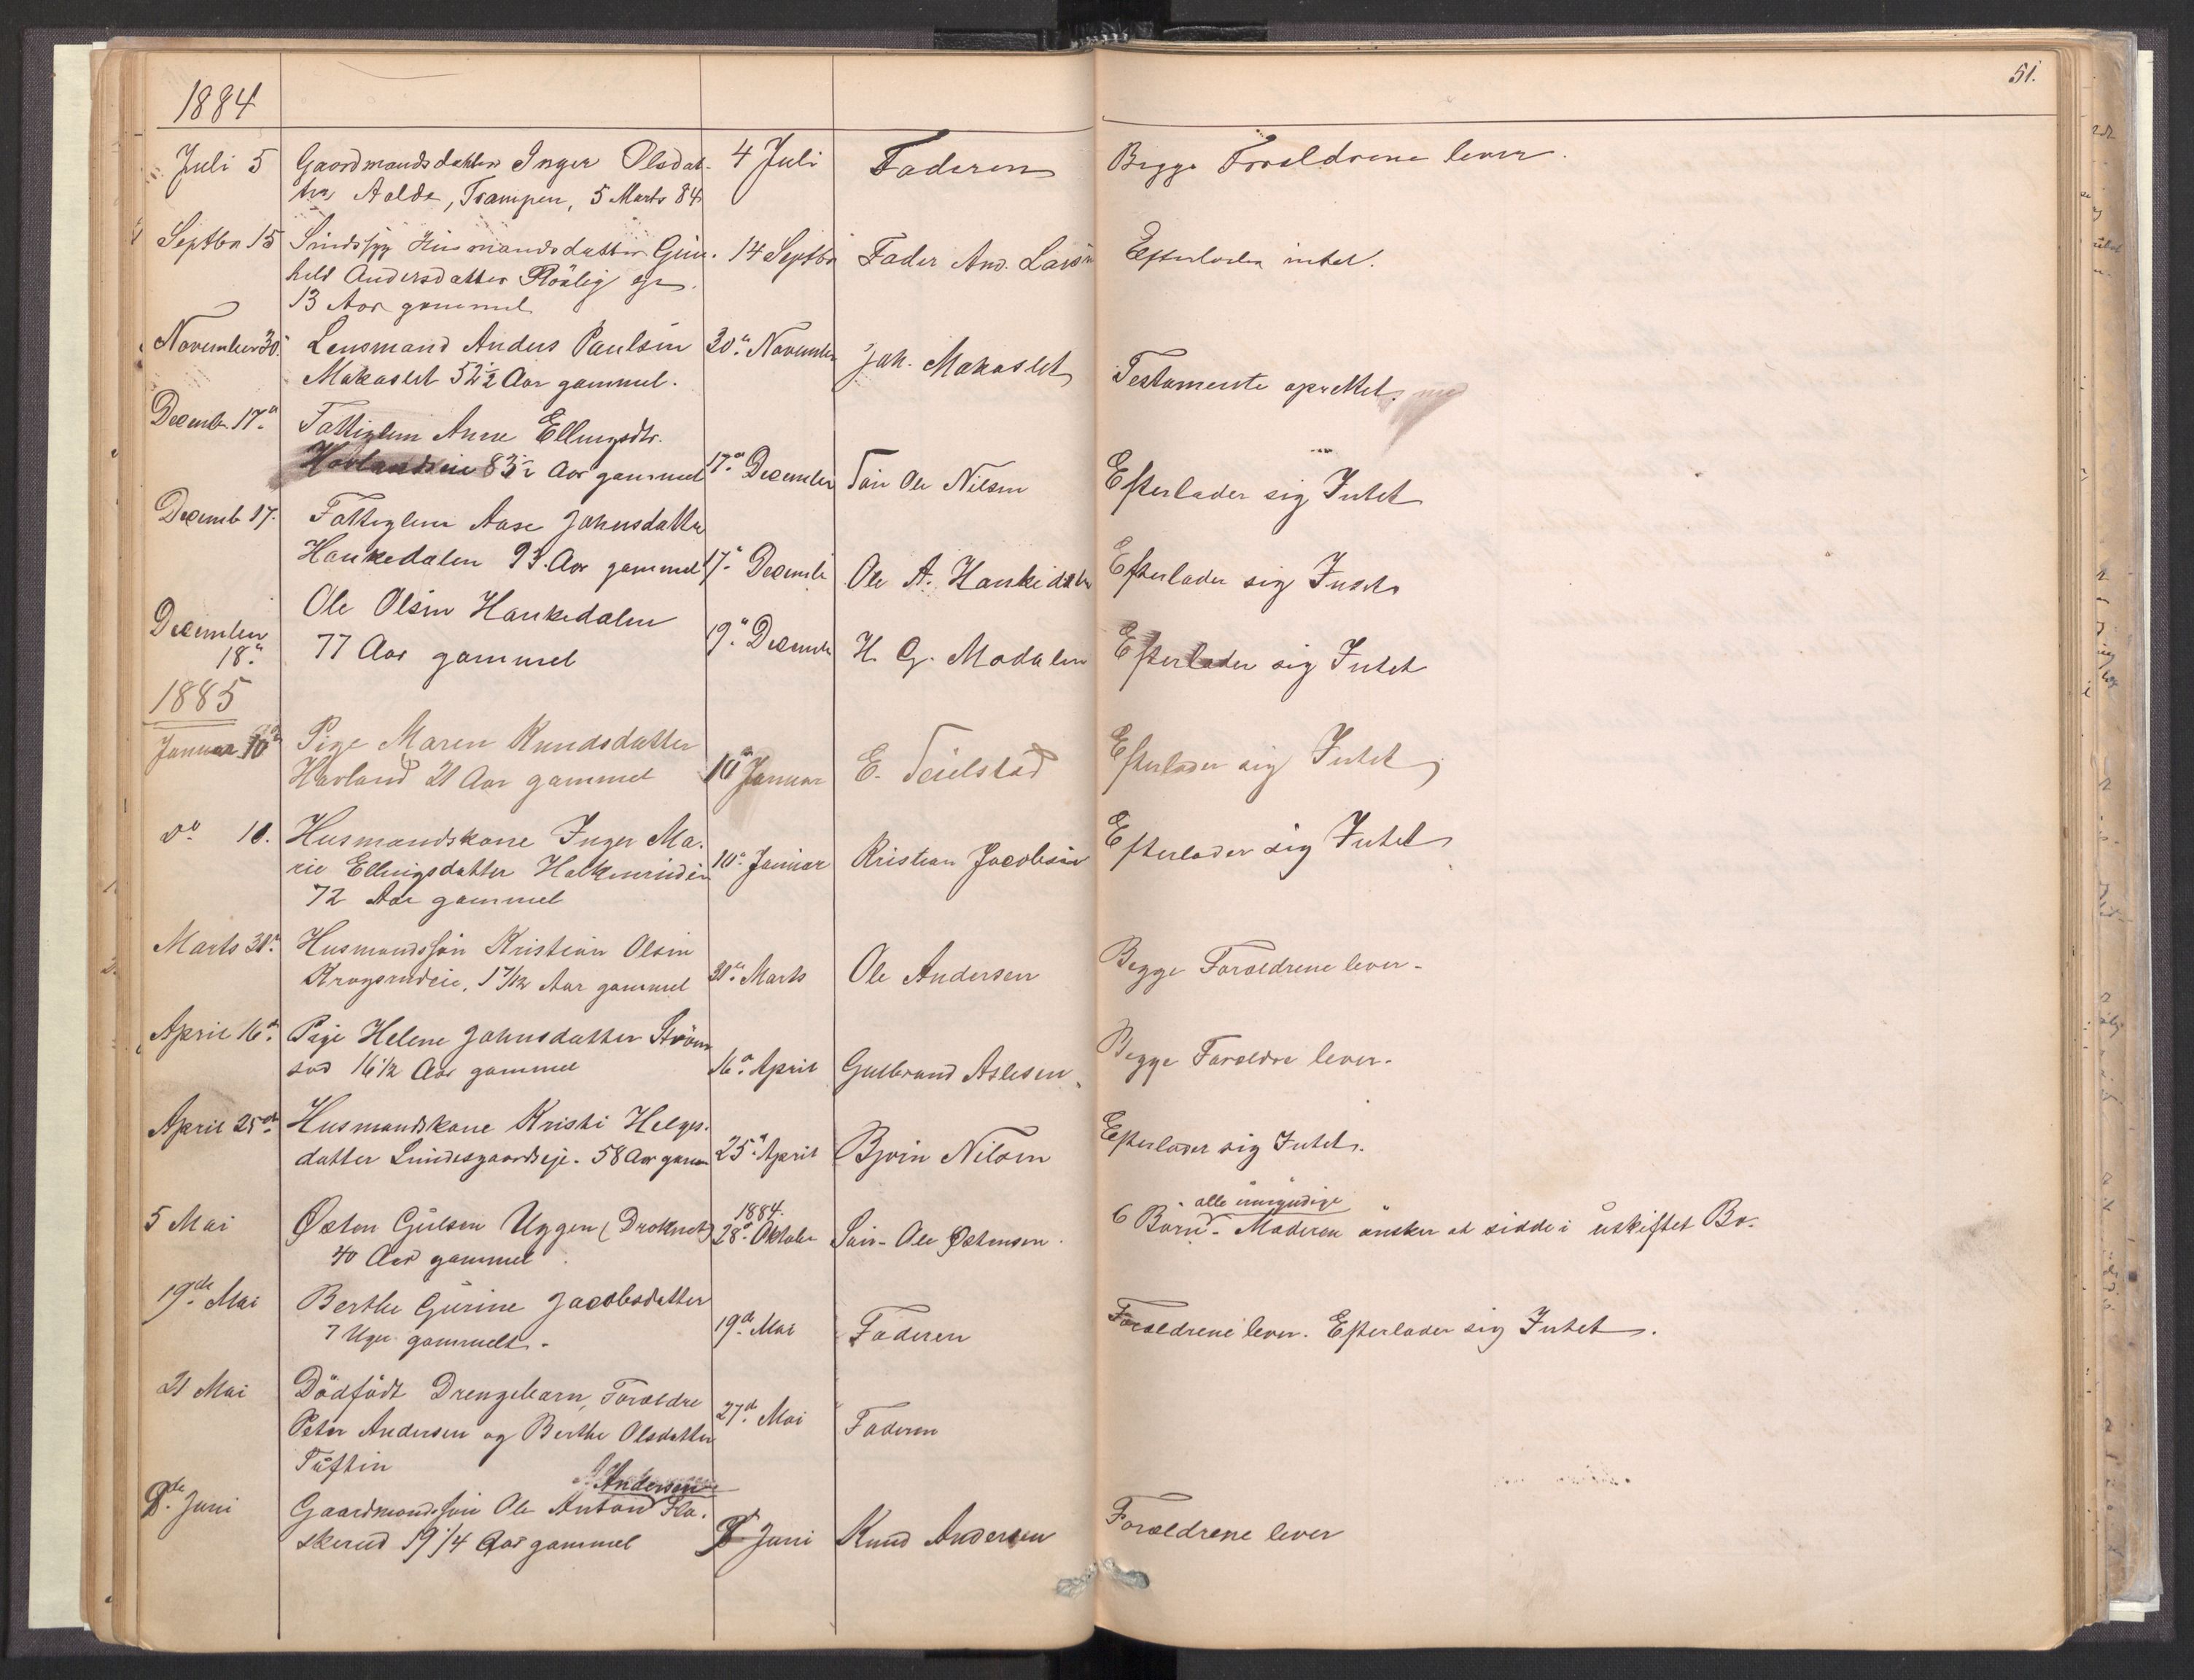 51.
1884
Juli 5 Gaardmandsdatter Inger Olsdat- 4 Juli Faderen Begge Forældrene lever.
ter Aalde, Trampen, 5 Marts 84
Septbr 15 Sindssyg Husmandsdatter Gun- 14 Septbr Fader And. Larsen Efterlader intet.
hild Andersdatter
13 Aar gammel
November 30. Lensmand Anders Paulsen 30te November Joh. Makaslet Testamente oprettet.
Makaslet 52½ Aar gammel.
Decemb. 17de Fattiglem Anne Ellingsdtr.
Havlandseie 83½ Aar gammel 17de December Søn Ole Nilsen Efterlader sig Intet
Decemb 17. Fattiglem Aase Johnsdatter
Hankedalen 93 Aar gammel 17de Decemb Ole A. Hankedalen Efterlader sig Intet
December Ole Olsen Hankedalen
18de 77 Aar gammel 19de December H. G. Modalen Efterlader sig Intet
1885
Januar 10de Pige Maren Knudsdatter
Havland 21 Aar gammel 10de Januar E. Teielstad Efterlader sig Intet
do 10. Husmandskone Inger Ma-
rie Ellingsdatter 10de Januar Kristian Jacobsen Efterlader sig Intet
72 Aar gammel
Marts 30te Husmandssøn Kristian Olsen
Krogsrudeie, 1 7/12 Aar gammel 30te Marts Ole Andersen Begge Forældrene lever.
April 16de Pige Helene Johnsdatter Strøm
sod 16½ Aar gammel 16de April Gulbrand Aslesen. Begge Forældre lever.
April 25de Husmandskone Kristi Helges-
datter Lundesgaardseje. 58 Aar gamm 25de April Bjørn Nilsen Efterlader sig Intet.
5 Mai Østen Gulsen Uggen (Druknet) 1884. 28de Oktober Søn Ole Østensen. 6 Børn - alle umyndige Moderen ønsker at sidde i uskiftet Bo.
40 Aar gammel.
19de Mai Berthe Gurine Jacobsdatter
7 Uger gammelt. 19de Mai Faderen Forældrene lever. Efterlader sig Intet.
21 Mai Dødfødt Drengebarn, Forældre
Peter Andersen og Berthe Olsdatter 27de Mai Faderen
Tuftin
8de Juni Gaardmandssøn Ole Anton Andersen Fla-
skerud 19 1/4 Aar gammel 8de Juni Knud Andersen Forældrene lever